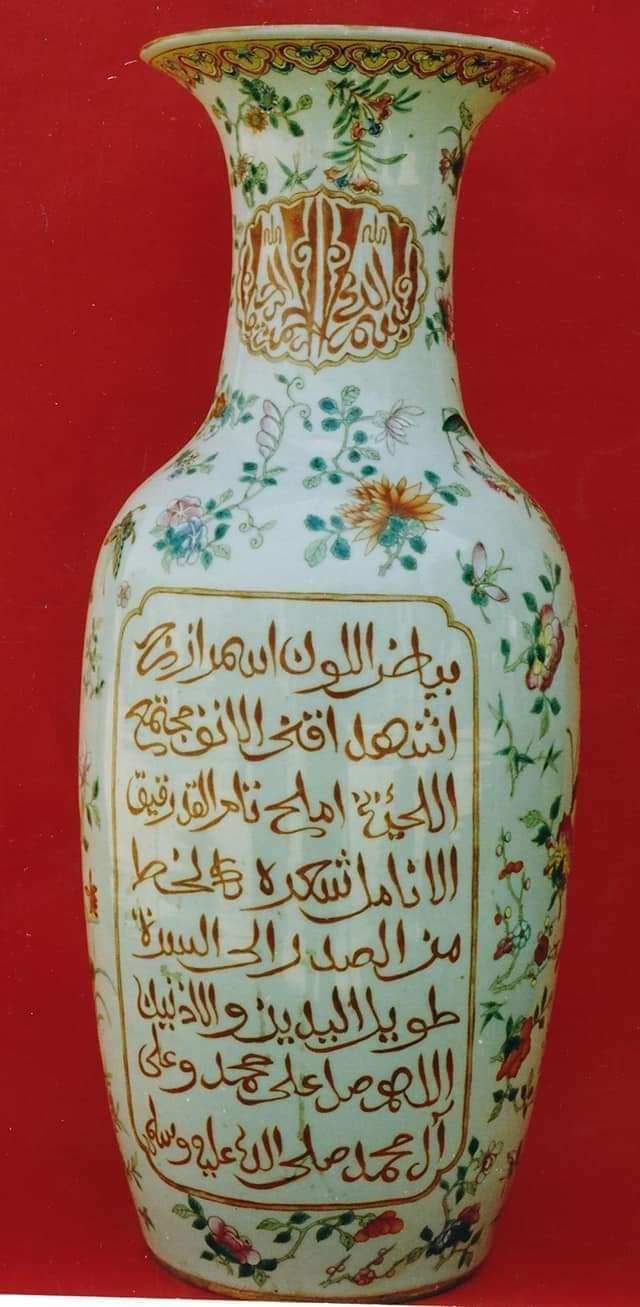 بسم الله الرحمن الرحيم
بياض اللون اسمر ازج
اشهل اقنى الانف مجتمع
اللحية املح تام القد رقيق
الانامل شكره كخط
من الصدر الى السرة
طويل اليدين والاذنين
اللهم صل على محمد وعلى
آل محمد صلى الله عليه وسلم